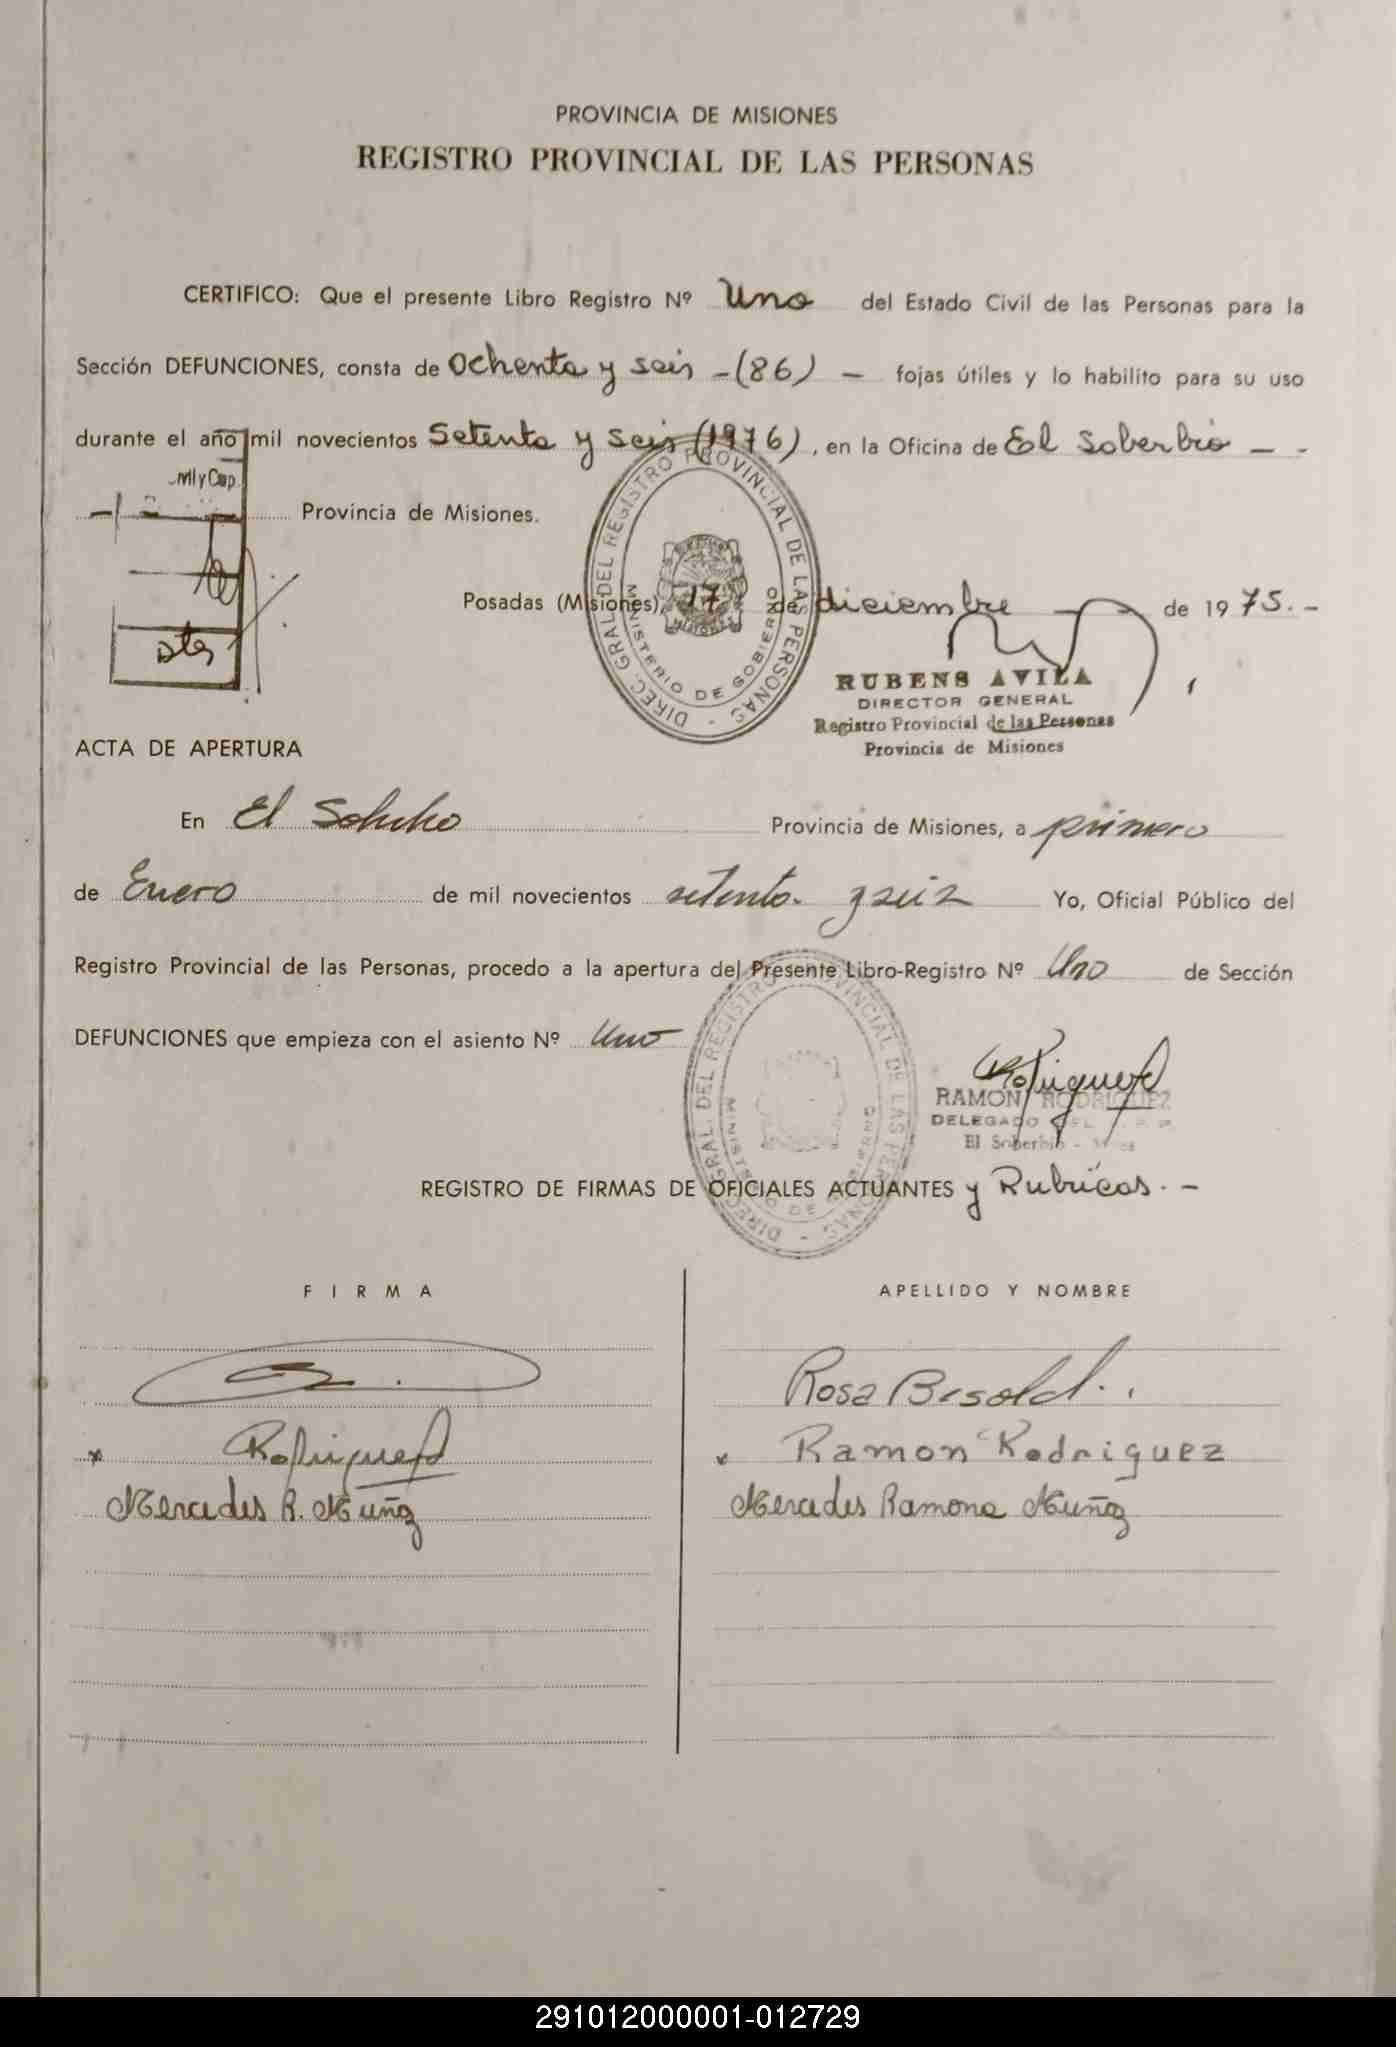 PROVINCIA DE MISIONES
REGISTRO PROVINCIAL DE LAS PERSONAS
CERTIFICO: Que el presente Libro Registro Nº Uno del Estado Civil de las Personas para la
Sección DEFUNCIONES, consta de Ochenta y seis -(86) - fojas útiles y lo habilito para su uso
durante el año mil novecientos Setenta y seis (1976), en la Oficina de El Soberbio - -
Provincia de Misiones.
Posadas (Misiones), 17 de diciembre de 1975.-
DIREC. GRAL. DEL REGISTRO PROVINCIAL DE LAS PERSONAS -
MINISTERIO DE GOBIERNO
MISIONES
RUBENS AVILA
DIRECTOR GENERAL
Registro Provincial de las Personas
Provincia de Misiones
ACTA DE APERTURA
En El Soberbio Provincia de Misiones, a primero
de Enero de mil novecientos setenta y seis Yo, Oficial Público del
Registro Provincial de las Personas, procedo a la apertura del Presente Libro-Registro Nº Uno de Sección
DEFUNCIONES que empieza con el asiento Nº Uno
DIREC. GRAL. DEL REGISTRO PROVINCIAL DE LAS PERSONAS -
MINISTERIO DE GOBIERNO
Rodriguez
RAMON RODRIGUEZ
DELEGADO DEL
El Soberbio -
REGISTRO DE FIRMAS DE OFICIALES ACTUANTES y Rubricas. -
FIRMA APELLIDO Y NOMBRE
Rosa Besold.
Rodriguez Ramon Rodriguez
Mercedes R. Muñoz Mercedes Ramona Muñoz
291012000001-012729